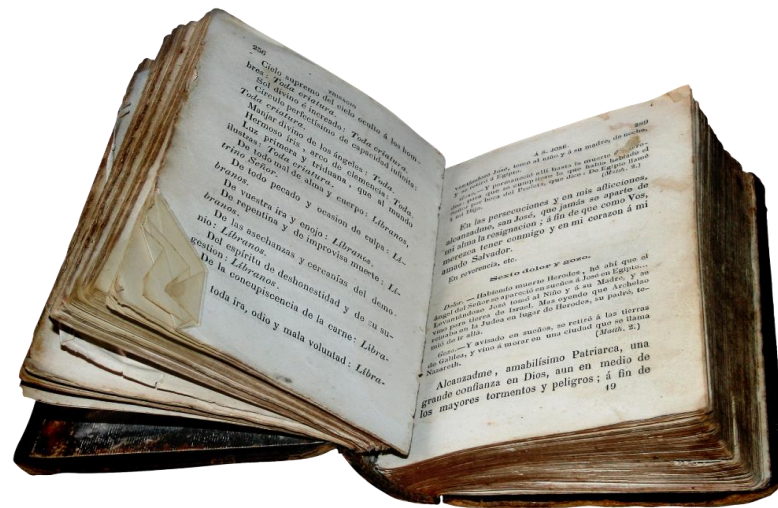 256
TRISAGIO
Cielo supremo del cielo oculto á los hom-
bres: Toda criatura.
Sol divino é increado: Toda criatura.
Círculo perfectísimo de capacidad infinita:
Toda criatura.
Manjar divino de los ángeles: Toda.
Hermoso íris, arco de clemencia: Toda.
Luz primera y triduana, que al mundo
ilustras: Toda criatura.
De todo mal de alma y cuerpo: Libranos,
trino Señor.
De todo pecado y ocasion de culpa: Li-
branos.
De vuestra ira y enojo: Libranos.
De repentina y de improvisa muerte: Li-
branos.
De las asechanzas y cercanías del demo-
nio: Libranos.
Del espíritu de deshonestidad y de su su-
gestion: Libranos.
De la concupiscencia de la carne: Libra-
toda ira, odio y mala voluntad: Libra-
A S. JOSÉ.
José, tomó al niño y á su madre, de noche,
y Egipto.
Gozo.—Y permaneció allí hasta la muerte de Hero-
des, para que se cumpliese lo que habia hablado el
Señor por boca del Profeta, que dice: De Egipto llamé
á mi Hijo.
(Matth. 2.)
En las persecuciones y en mis aflicciones,
alcanzadme, san José, que jamás se aparte de
mi alma la resignacion; á fin de que como Vos,
merezca tener conmigo y en mi corazon á mi
amado Salvador.
En reverencia, etc.
Sexto dolor y gozo.
Dolor.—Habiendo muerto Herodes, hé ahí que el
ángel del Señor se apareció en sueños á José en Egipto...
Levantándose José tomó al Niño y á su Madre, y se
vino para tierra de Israel. Mas oyendo que Archelao
reinaba en la Judea en lugar de Herodes, su padre, te-
mió de ir allá.
Gozo.—Y avisado en sueños, se retiró á las tierras
de Galilea, y vino á morar en una ciudad que se llama
Nazareth.
(Matth. 2.)
Alcanzadme, amabilísimo Patriarca, una
grande confianza en Dios, aun en medio de
los mayores tormentos y peligros; á fin de
19